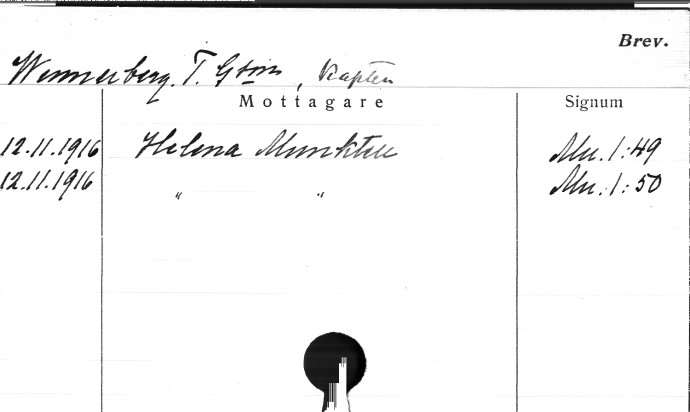 Brev.
Wennerberg, T. Gson, Kapten
Mottagare Signum
12.11.1916 Helena Munktell Mu. 1:49
12.11.1916 " " Mu. 1:50